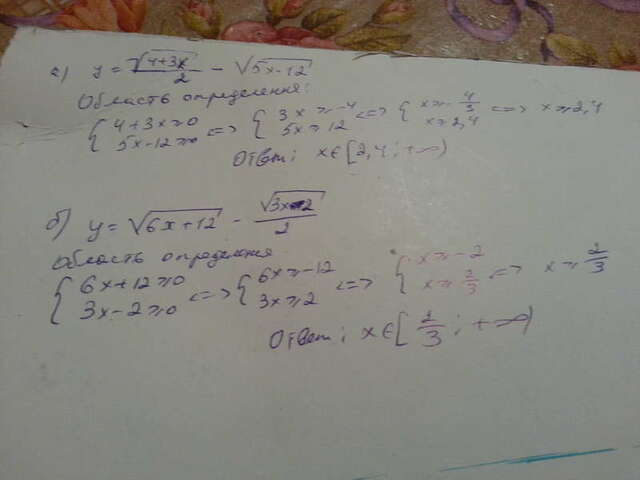 а) y = √(4+3x)/2 - √(5x-12)
Область определения:
{ 4+3x ≥ 0 5x-12 ≥ 0 <=> { 3x ≥ -4 5x ≥ 12 <=> { x ≥ -4/3 x ≥ 2,4 <=> x ≥ 2,4
Ответ: x ∈ [2,4; +∞)
б) y = √(6x+12) - √(3x-2)/2
Область определения
{ 6x+12 ≥ 0 3x-2 ≥ 0 <=> { 6x ≥ -12 3x ≥ 2 <=> { x ≥ -2 x ≥ 2/3 <=> x ≥ 2/3
Ответ: x ∈ [2/3; +∞)